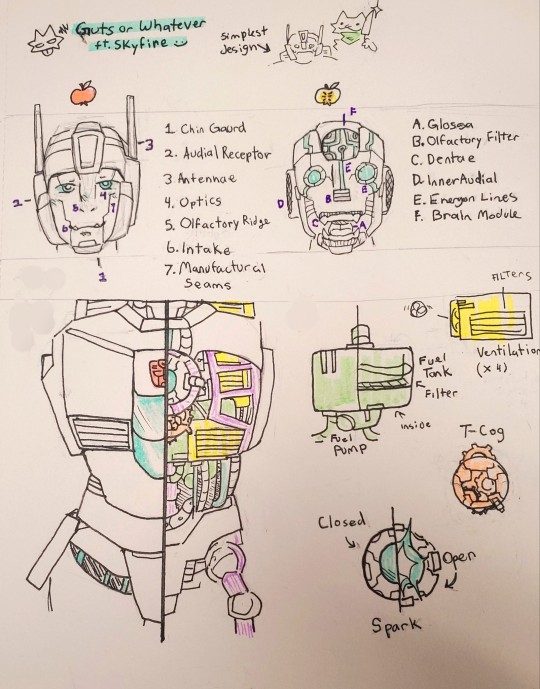 Guts or Whatever
ft. Skyfire
simplest
design
1. Chin Gaurd
2. Audial Receptor
3 Antennae
4. Optics
5. Olfactory Ridge
6. Intake
7. Manufactural
Seams
3
2
4
5
7
6
1
F
A. Glossa
B. Olfactory Filter
C. Dentae
D. Inner Audial
E. Energon Lines
F. Brain Module
E
E
B
D
C
A
FILTERS
Ventilation
(x 4)
Fuel
Tank
Filter
inside
Fuel
Pump
T-Cog
Closed
Open
Spark